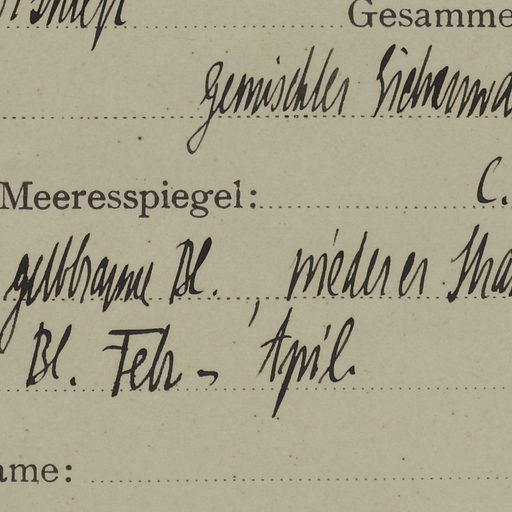 Gesamme
gemischter Eichenwa
Meeresspiegel: C.
gelbbraune Bl., niederer Stra
Bl. Febr - April.
ame: